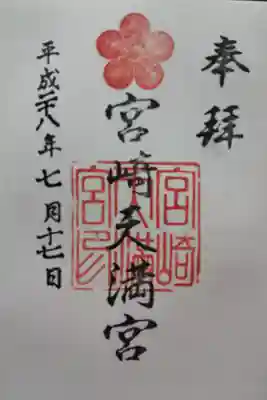 奉拝
宮崎天満宮
宮崎天満宮印
平成二十八年七月十七日